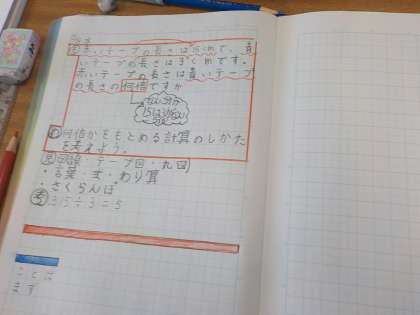 赤いテープの長さは15cmで、青
いテープの長さは3cmです。
赤いテープの長さは青いテープ
の長さの何倍ですか
何倍かをもとめる計算のしかた
を考えよう。
・テープ図・丸図)
・言葉・文・わり算
・さくらんぼ
15÷3=5
ことば
まず